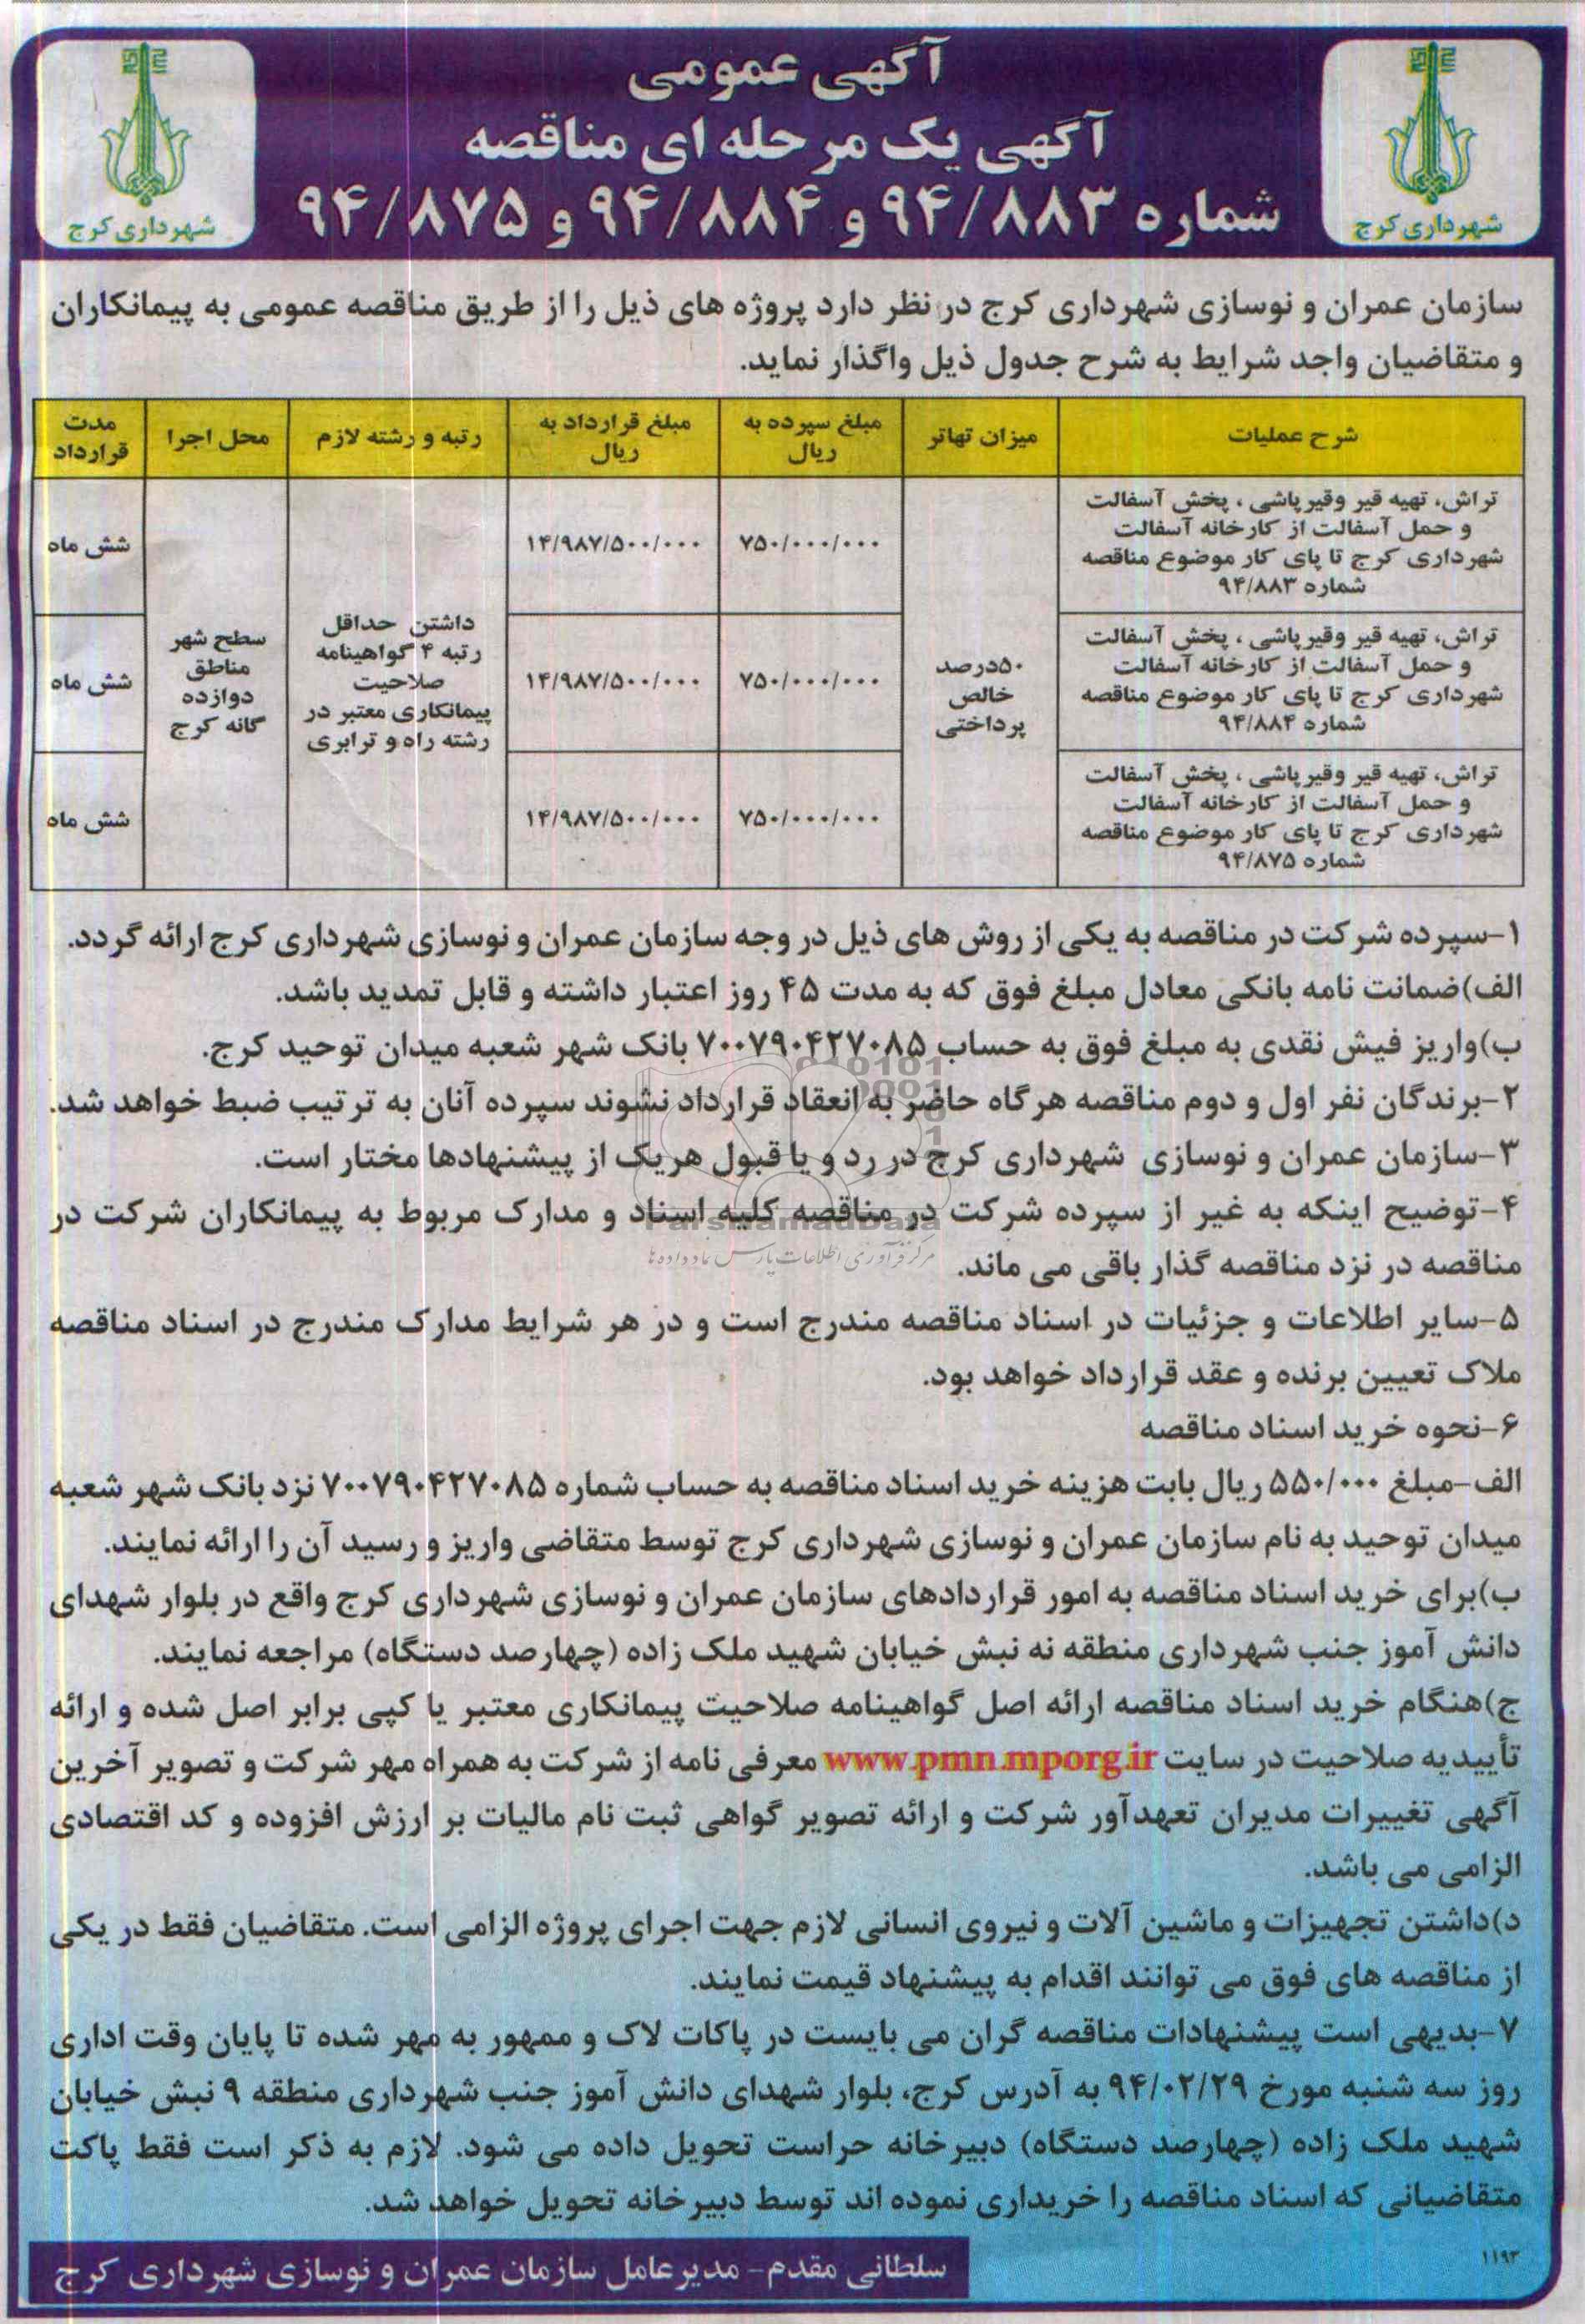 آگهی عمومی
آگهی یک مرحله ای مناقصه
شماره ۹۴/۸۸۳ و ۹۴/۸۸۴ و ۹۴/۸۷۵
شهرداری کرج
شهرداری کرج
سازمان عمران و نوسازی شهرداری کرج در نظر دارد پروژه های ذیل را از طریق مناقصه عمومی به پیمانکاران
و متقاضیان واجد شرایط به شرح جدول ذیل واگذار نماید.
شرح عملیات
میزان تهاتر
مبلغ سپرده به
ریال
مبلغ قرارداد به
ریال
رتبه و رشته لازم
محل اجرا
مدت
قرارداد
تراش، تهیه قیر وقیرپاشی ، پخش آسفالت
و حمل آسفالت از کارخانه آسفالت
شهرداری کرج تا پای کار موضوع مناقصه
شماره ۹۴/۸۸۳
۷۵۰/۰۰۰/۰۰۰
۱۴/۹۸۷/۵۰۰/۰۰۰
شش ماه
تراش، تهیه قیر وقیرپاشی ، پخش آسفالت
و حمل آسفالت از کارخانه آسفالت
شهرداری کرج تا پای کار موضوع مناقصه
شماره ۹۴/۸۸۴
۵۰درصد
خالص
پرداختی
۷۵۰/۰۰۰/۰۰۰
۱۴/۹۸۷/۵۰۰/۰۰۰
داشتن حداقل
رتبه ۴ گواهینامه
صلاحیت
پیمانکاری معتبر در
رشته راه و ترابری
سطح شهر
مناطق
دوازده
گانه کرج
شش ماه
تراش، تهیه قیر وقیرپاشی ، پخش آسفالت
و حمل آسفالت از کارخانه آسفالت
شهرداری کرج تا پای کار موضوع مناقصه
شماره ۹۴/۸۷۵
۷۵۰/۰۰۰/۰۰۰
۱۴/۹۸۷/۵۰۰/۰۰۰
شش ماه
۱-سپرده شرکت در مناقصه به یکی از روش های ذیل در وجه سازمان عمران و نوسازی شهرداری کرج ارائه گردد.
الف)ضمانت نامه بانکی معادل مبلغ فوق که به مدت ۴۵ روز اعتبار داشته و قابل تمدید باشد.
ب)واریز فیش نقدی به مبلغ فوق به حساب ۷۰۰۷۹۰۴۲۷۰۸۵ بانک شهر شعبه میدان توحید کرج.
۲-برندگان نفر اول و دوم مناقصه هرگاه حاضر به انعقاد قرارداد نشوند سپرده آنان به ترتیب ضبط خواهد شد.
۳-سازمان عمران و نوسازی شهرداری کرج در رد و یا قبول هریک از پیشنهادها مختار است.
۴-توضیح اینکه به غیر از سپرده شرکت در مناقصه کلیه اسناد و مدارک مربوط به پیمانکاران شرکت در
مناقصه در نزد مناقصه گذار باقی می ماند.
مرکز فرآوری اطلاعات پارس نماد داده ها
۵-سایر اطلاعات و جزئیات در اسناد مناقصه مندرج است و در هر شرایط مدارک مندرج در اسناد مناقصه
ملاک تعیین برنده و عقد قرارداد خواهد بود.
۶-نحوه خرید اسناد مناقصه
الف-مبلغ ۵۵۰/۰۰۰ ریال بابت هزینه خرید اسناد مناقصه به حساب شماره ۷۰۰۷۹۰۴۲۷۰۸۵ نزد بانک شهر شعبه
میدان توحید به نام سازمان عمران و نوسازی شهرداری کرج توسط متقاضی واریز و رسید آن را ارائه نمایند.
ب)برای خرید اسناد مناقصه به امور قراردادهای سازمان عمران و نوسازی شهرداری کرج واقع در بلوار شهدای
دانش آموز جنب شهرداری منطقه نه نبش خیابان شهید ملک زاده (چهارصد دستگاه) مراجعه نمایند.
ج)هنگام خرید اسناد مناقصه ارائه اصل گواهینامه صلاحیت پیمانکاری معتبر یا کپی برابر اصل شده و ارائه
تأییدیه صلاحیت در سایت www.pmn.mporg.ir معرفی نامه از شرکت به همراه مهر شرکت و تصویر آخرین
آگهی تغییرات مدیران تعهدآور شرکت و ارائه تصویر گواهی ثبت نام مالیات بر ارزش افزوده و کد اقتصادی
الزامی می باشد.
د)داشتن تجهیزات و ماشین آلات و نیروی انسانی لازم جهت اجرای پروژه الزامی است. متقاضیان فقط در یکی
از مناقصه های فوق می توانند اقدام به پیشنهاد قیمت نمایند.
۷-بدیهی است پیشنهادات مناقصه گران می بایست در پاکات لاک و ممهور به مهر شده تا پایان وقت اداری
روز سه شنبه مورخ ۹۴/۰۲/۲۹ به آدرس کرج، بلوار شهدای دانش آموز جنب شهرداری منطقه ۹ نبش خیابان
شهید ملک زاده (چهارصد دستگاه) دبیرخانه حراست تحویل داده می شود. لازم به ذکر است فقط پاکت
متقاضیانی که اسناد مناقصه را خریداری نموده اند توسط دبیرخانه تحویل خواهد شد.
۱۱۹۳
سلطانی مقدم- مدیرعامل سازمان عمران و نوسازی شهرداری کرج